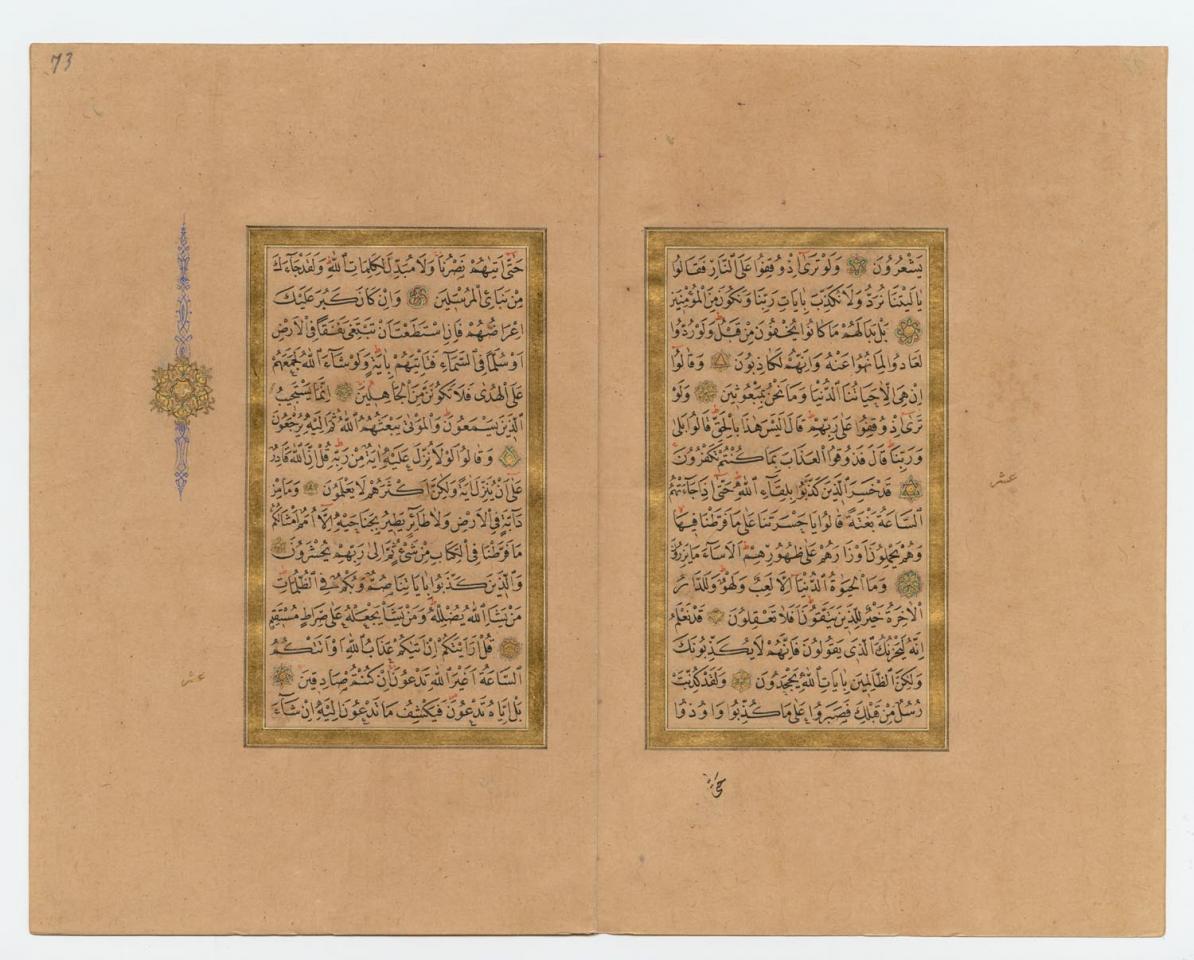 يَشْعُرُونَ وَلَوْ تَرٰى اِذْ وُقِفُوا عَلَى النَّارِ فَقَالُوا
يَا لَيْتَنَا نُرَدُّ وَلَا نُكَذِّبَ بِاٰيَاتِ رَبِّنَا وَنَكُونَ مِنَ الْمُؤْمِنِينَ
بَلْ بَدَا لَهُمْ مَا كَانُوا يُخْفُونَ مِنْ قَبْلُ وَلَوْ رُدُّوا
لَعَادُوا لِمَا نُهُوا عَنْهُ وَاِنَّهُمْ لَكَاذِبُونَ وَقَالُوا
اِنْ هِيَ اِلَّا حَيَاتُنَا الدُّنْيَا وَمَا نَحْنُ بِمَبْعُوثِينَ وَلَوْ
تَرٰى اِذْ وُقِفُوا عَلٰى رَبِّهِمْ قَالَ اَلَيْسَ هٰذَا بِالْحَقِّ قَالُوا بَلٰى
وَرَبِّنَا قَالَ فَذُوقُوا الْعَذَابَ بِمَا كُنْتُمْ تَكْفُرُونَ
قَدْ خَسِرَ الَّذِينَ كَذَّبُوا بِلِقَاءِ اللّٰهِ حَتّٰى اِذَا جَاءَتْهُمُ
السَّاعَةُ بَغْتَةً قَالُوا يَا حَسْرَتَنَا عَلٰى مَا فَرَّطْنَا فِيهَا
وَهُمْ يَحْمِلُونَ اَوْزَارَهُمْ عَلٰى ظُهُورِهِمْ اَلَا سَاءَ مَا يَزِرُونَ
وَمَا الْحَيٰوةُ الدُّنْيَا اِلَّا لَعِبٌ وَلَهْوٌ وَلَلدَّارُ
الْاٰخِرَةُ خَيْرٌ لِلَّذِينَ يَتَّقُونَ اَفَلَا تَعْقِلُونَ قَدْ نَعْلَمُ
اِنَّهُ لَيَحْزُنُكَ الَّذِى يَقُولُونَ فَاِنَّهُمْ لَا يُكَذِّبُونَكَ
وَلٰكِنَّ الظَّالِمِينَ بِاٰيَاتِ اللّٰهِ يَجْحَدُونَ وَلَقَدْ كُذِّبَتْ
رُسُلٌ مِنْ قَبْلِكَ فَصَبَرُوا عَلٰى مَا كُذِّبُوا وَاُوذُوا
حَتّٰى
عشر
73
حَتّٰى اَتٰيهُمْ نَصْرُنَا وَلَا مُبَدِّلَ لِكَلِمَاتِ اللّٰهِ وَلَقَدْ جَاءَكَ
مِنْ نَبَائِ الْمُرْسَلِينَ وَاِنْ كَانَ كَبُرَ عَلَيْكَ
اِعْرَاضُهُمْ فَاِنِ اسْتَطَعْتَ اَنْ تَبْتَغِىَ نَفَقًا فِى الْاَرْضِ
اَوْ سُلَّمًا فِى السَّمَاءِ فَتَاْتِيَهُمْ بِاٰيَةٍ وَلَوْ شَاءَ اللّٰهُ لَجَمَعَهُمْ
عَلَى الْهُدٰى فَلَا تَكُونَنَّ مِنَ الْجَاهِلِينَ اِنَّمَا يَسْتَجِيبُ
الَّذِينَ يَسْمَعُونَ وَالْمَوْتٰى يَبْعَثُهُمُ اللّٰهُ ثُمَّ اِلَيْهِ يُرْجَعُونَ
وَقَالُوا لَوْلَا نُزِّلَ عَلَيْهِ اٰيَةٌ مِنْ رَبِّهِ قُلْ اِنَّ اللّٰهَ قَادِرٌ
عَلٰى اَنْ يُنَزِّلَ اٰيَةً وَلٰكِنَّ اَكْثَرَهُمْ لَا يَعْلَمُونَ وَمَا مِنْ
دَابَّةٍ فِى الْاَرْضِ وَلَا طَائِرٍ يَطِيرُ بِجَنَاحَيْهِ اِلَّا اُمَمٌ اَمْثَالُكُمْ
مَا فَرَّطْنَا فِى الْكِتَابِ مِنْ شَىْءٍ ثُمَّ اِلٰى رَبِّهِمْ يُحْشَرُونَ
وَالَّذِينَ كَذَّبُوا بِاٰيَاتِنَا صُمٌّ وَبُكْمٌ فِى الظُّلُمَاتِ
مَنْ يَشَاِ اللّٰهُ يُضْلِلْهُ وَمَنْ يَشَاْ يَجْعَلْهُ عَلٰى صِرَاطٍ مُسْتَقِيمٍ
قُلْ اَرَاَيْتَكُمْ اِنْ اَتٰيكُمْ عَذَابُ اللّٰهِ اَوْ اَتَتْكُمُ
السَّاعَةُ اَغَيْرَ اللّٰهِ تَدْعُونَ اِنْ كُنْتُمْ صَادِقِينَ
بَلْ اِيَّاهُ تَدْعُونَ فَيَكْشِفُ مَا تَدْعُونَ اِلَيْهِ اِنْ شَاءَ
عشر